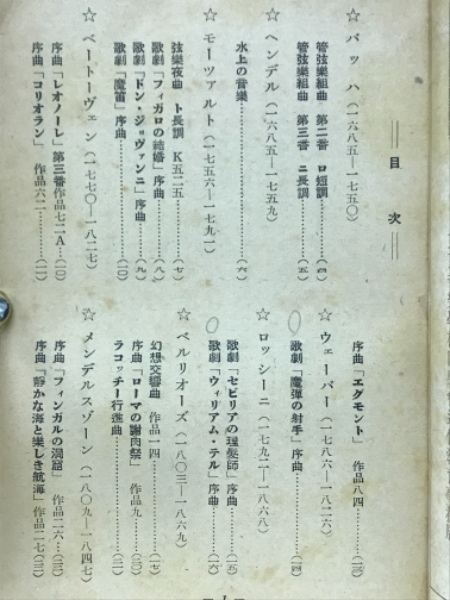 目次
☆ バッハ（一六八五―一七五〇）
管弦樂組曲 第二番 ロ短調…………（四）
管弦樂組曲 第三番 ニ長調…………（五）
☆ ヘンデル（一六八五―一七五九）
水上の音樂…………（六）
☆ モーツァルト（一七五六―一七九一）
弦樂夜曲 ト長調 K五二五…………（七）
歌劇「フィガロの結婚」序曲…………（八）
歌劇「ドン・ジョヴァンニ」序曲…………（九）
歌劇「魔笛」序曲…………（一〇）
☆ ベートーヴェン（一七七〇―一八二七）
序曲「レオノーレ」第三番作品七二A…（一〇）
序曲「コリオラン」 作品六二…………（一一）
序曲「エグモント」 作品八四…………
☆ ウェーバー（一七八六―一八二六）
歌劇「魔彈の射手」序曲…………（一四）
☆ ロッシーニ（一七九二―一八六八）
歌劇「セビリアの理髮師」序曲…………（一五）
歌劇「ウィリアム・テル」序曲…………（一六）
☆ ベルリオーズ（一八〇三―一八六九）
幻想交響曲 作品一四…………（一七）
序曲「ローマの謝肉祭」 作品九…………
ラコッチー行進曲…………
☆ メンデルスゾーン（一八〇九―一八四七）
序曲「フィンガルの洞窟」 作品二六…
序曲「靜かな海と樂しき航海」 作品二七
― 1 ―